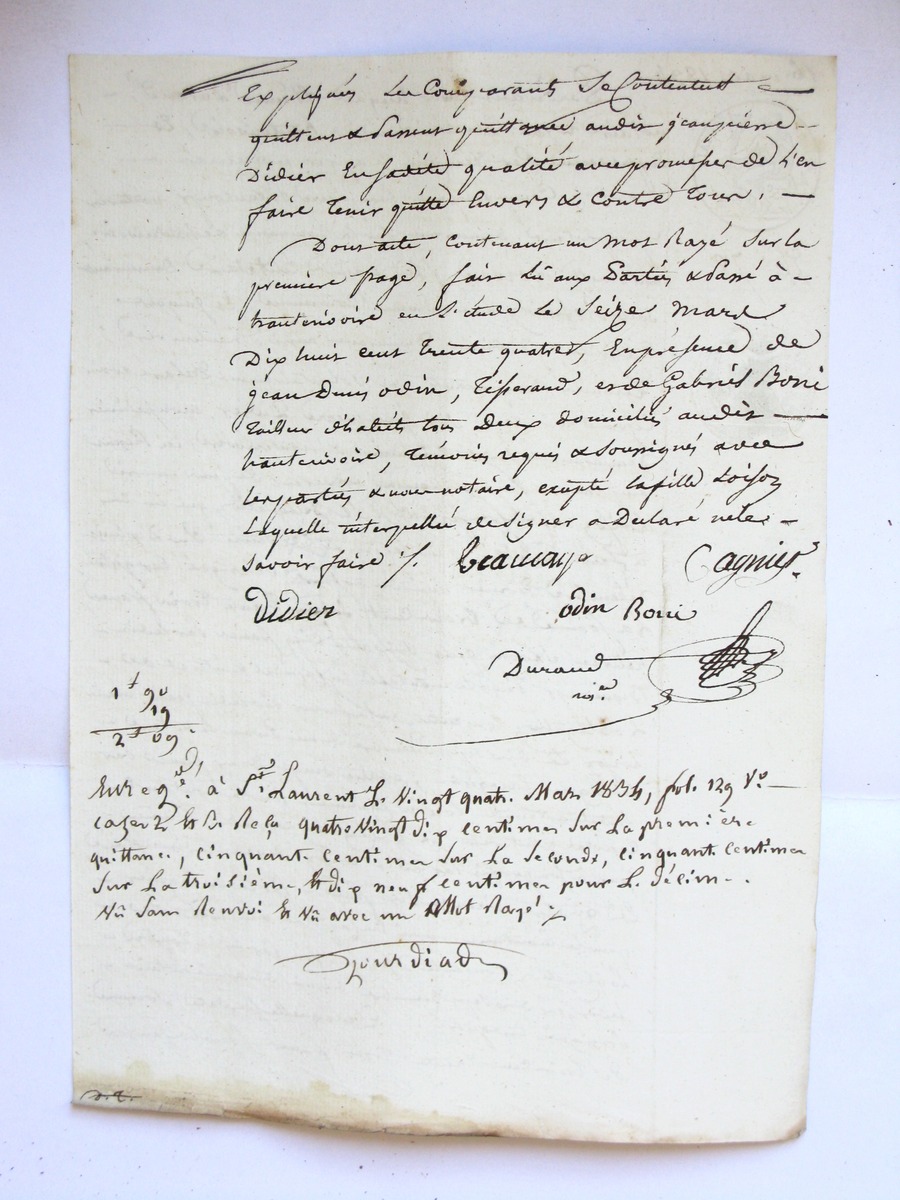 Expliqués Les Comparants Se Contentent
quittent & Passent quittance audit jean pierre
Didier En sadite qualité avec promesse de L'en
faire Tenir quitte Envers & Contre Tous.
Dont acte, Contenant un Mot Rayé Sur la
première page, fait Lû aux Parties & Passé à
hauterivoire en L'étude Le Seize Mars
Dix huit cent Trente quatre, En présence de
jean Denis odin, Tisserand, et de Gabriel Boni
Tailleur d'habits tous Deux domiciliés audit
hauterivoire, Témoins requis & Soussignés avec
les parties & nous notaire, excepté la fille Loison
Laquelle interpellée de Signer a Declaré ne le
Savoir faire ./.
Cagnies
Didier
odin Boni
Durand
nore
1 f 90
19
2 f 09
Enregé. à St. Laurent Le Vingt quatre Mars 1834, fol. 129 Vo
cases 2 et 3. Reçu quatre Vingt dix centimes Sur La première
quittance, cinquante centimes Sur La Seconde, cinquante centimes
Sur La troisième, et dix neuf centimes pour Le décime.
Vû Sans Renvoi Et Vû avec un Mot Rayé